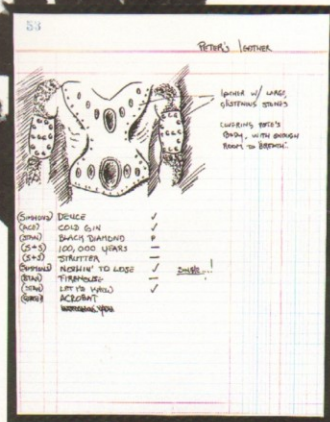 53
PETER'S LEATHER
LEATHER W/ LARGE,
GLISTENING STONES
COVERING PETE'S
BODY, WITH ENOUGH
ROOM TO BREATH.
(SIMMONS) DEUCE ✓
(ACE) COLD GIN ✓
(STAN) BLACK DIAMOND
(S+S) 100,000 YEARS —
(S+S) STRUTTER —
(SIMMONS) NOTHIN' TO LOSE ✓
(STAN) FIREHOUSE —
(STAN) LET ME KNOW ✓
ACROBAT